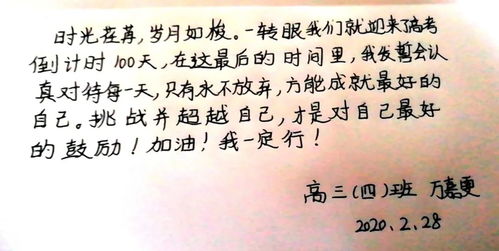 时光荏苒,岁月如梭。一转眼我们就迎来了高考
倒计时100天,在这最后的时间里,我发誓会认
真对待每一天,只有永不放弃,方能成就最好的
自己。挑战并超越自己,才是对自己最好
的鼓励!加油!我一定行!
高三(四)班 万嘉雯
2020.2.28